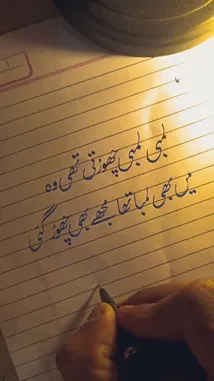 لمبی لمبی چھوڑتی تھی وہ
میں بھی لمبا تھا مجھے بھی چھوڑ گئی